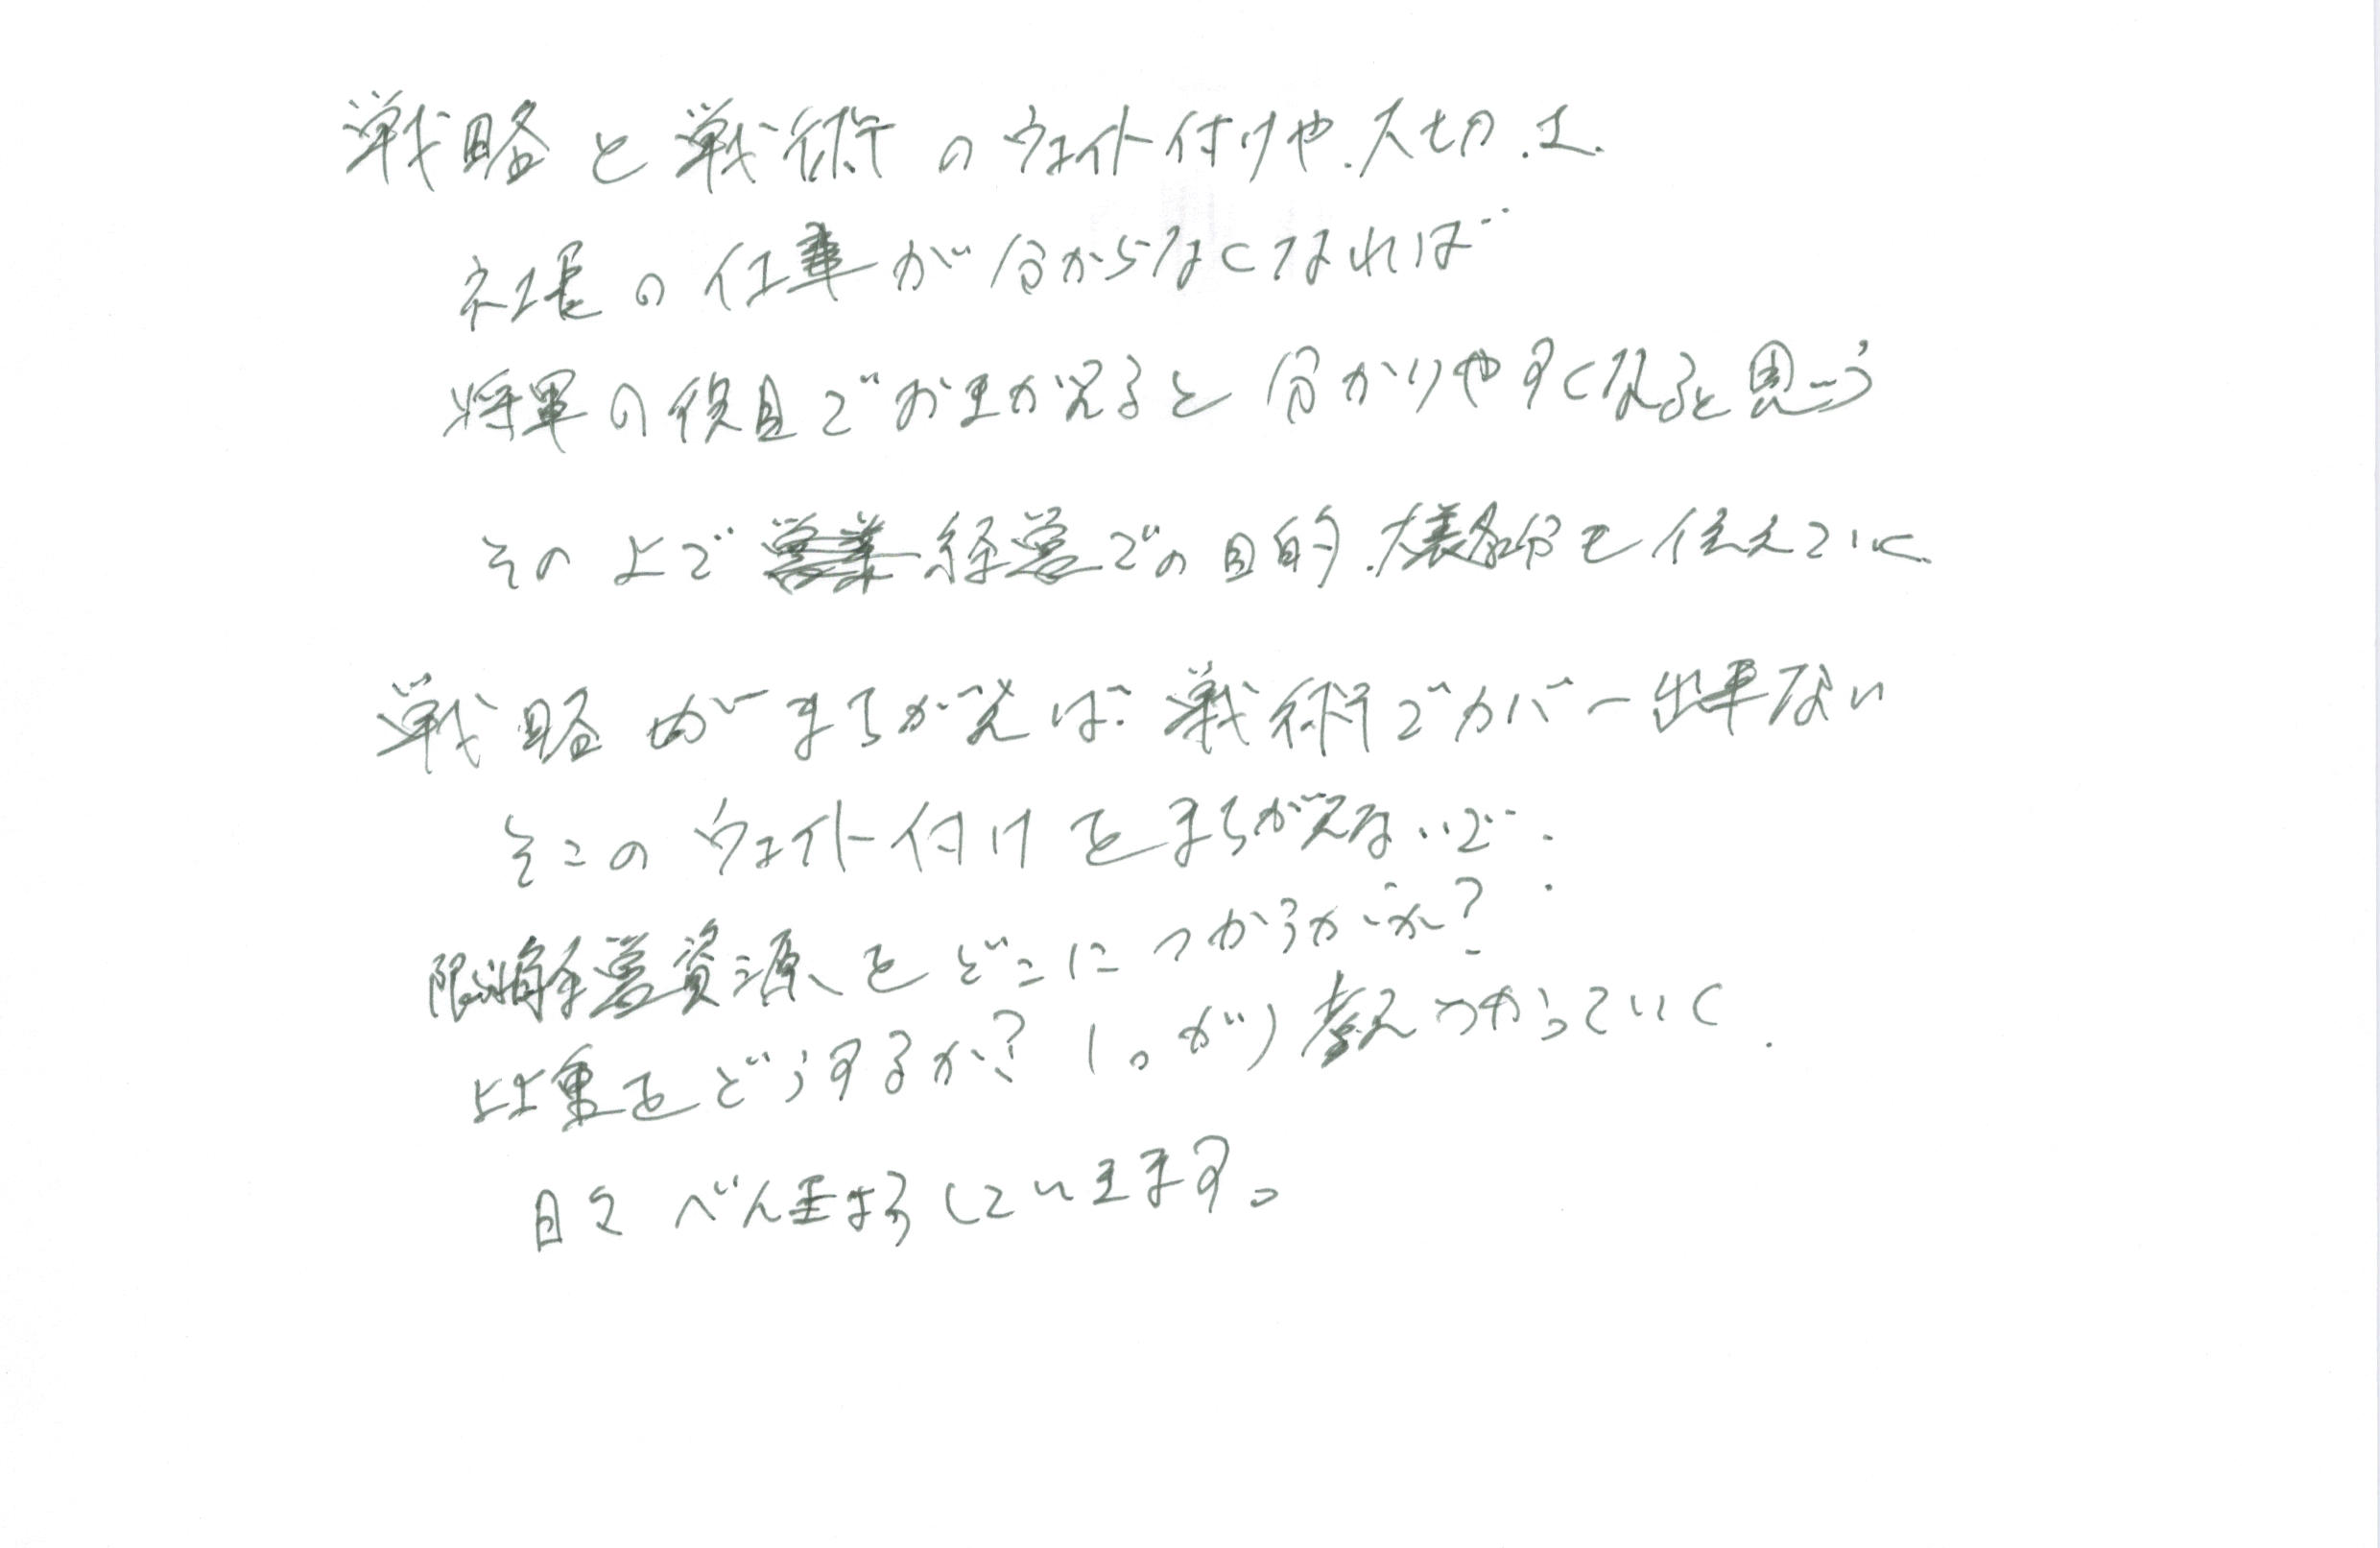 戦略と戦術のウェイト付けや、大切さ、
社長の仕事が分からなくなれば
将軍の役目でおきかえると分かりやすくなると思う
その上で 経営での目的、大事な部分を伝えていく
戦略がまちがえば 戦術でカバー出来ない
そこのウェイト付けをまちがえないで
限りある経営資源をどこにつかうか?
比重をどうするか? しっかり考えつかっていく
日々べんきょうしています。